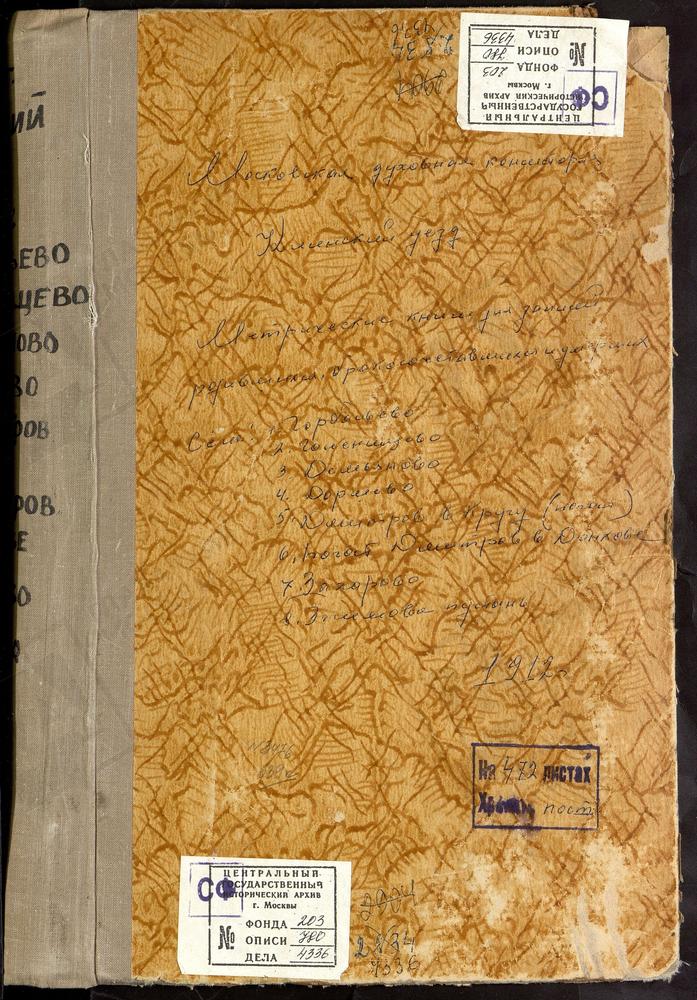 ИЙ
ЬЕВО
ЩЕВО
ОВО
ВО
РОВ
РОВ
Е
О
2834
4336
ЦЕНТРАЛЬНЫЙ
ГОСУДАРСТВЕННЫЙ
ИСТОРИЧЕСКИЙ АРХИВ
г. Москвы
СФ
№
ФОНДА 203
ОПИСИ 780
ДЕЛА 4336
Московская духовная консистория
Клинский уезд
Метрические книги для записи
родившихся, бракосочетавшихся и умерших
Села: 1. Горбасьево
2. Голенищево
3. Демьяново
4. Доршево
5. Дмитров в Кругу (погост)
6. Погост Дмитров в Данхове
7. Захарово
8. Зосимова пустынь
1912г
На 472 листах
Хранить пост.
ЦЕНТРАЛЬНЫЙ
ГОСУДАРСТВЕННЫЙ
ИСТОРИЧЕСКИЙ АРХИВ
г. Москвы
СФ
№
ФОНДА 203
ОПИСИ 780
ДЕЛА 4336
2834
4336